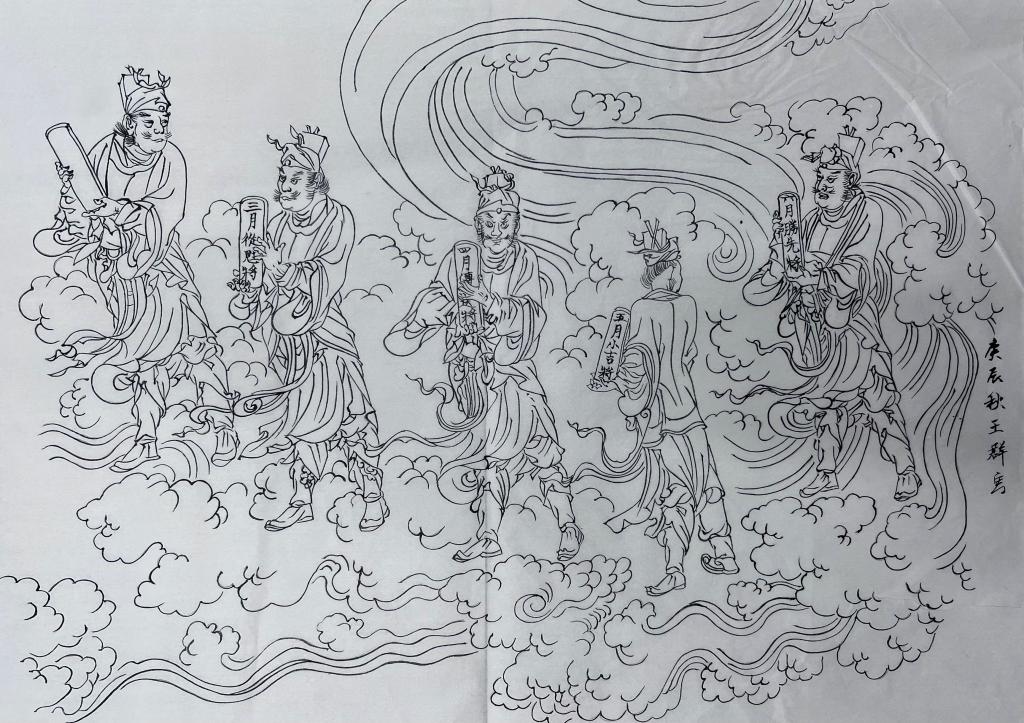 三月從魁將
四月傳送將
五月小吉將
六月勝先將
庚辰秋王群寫